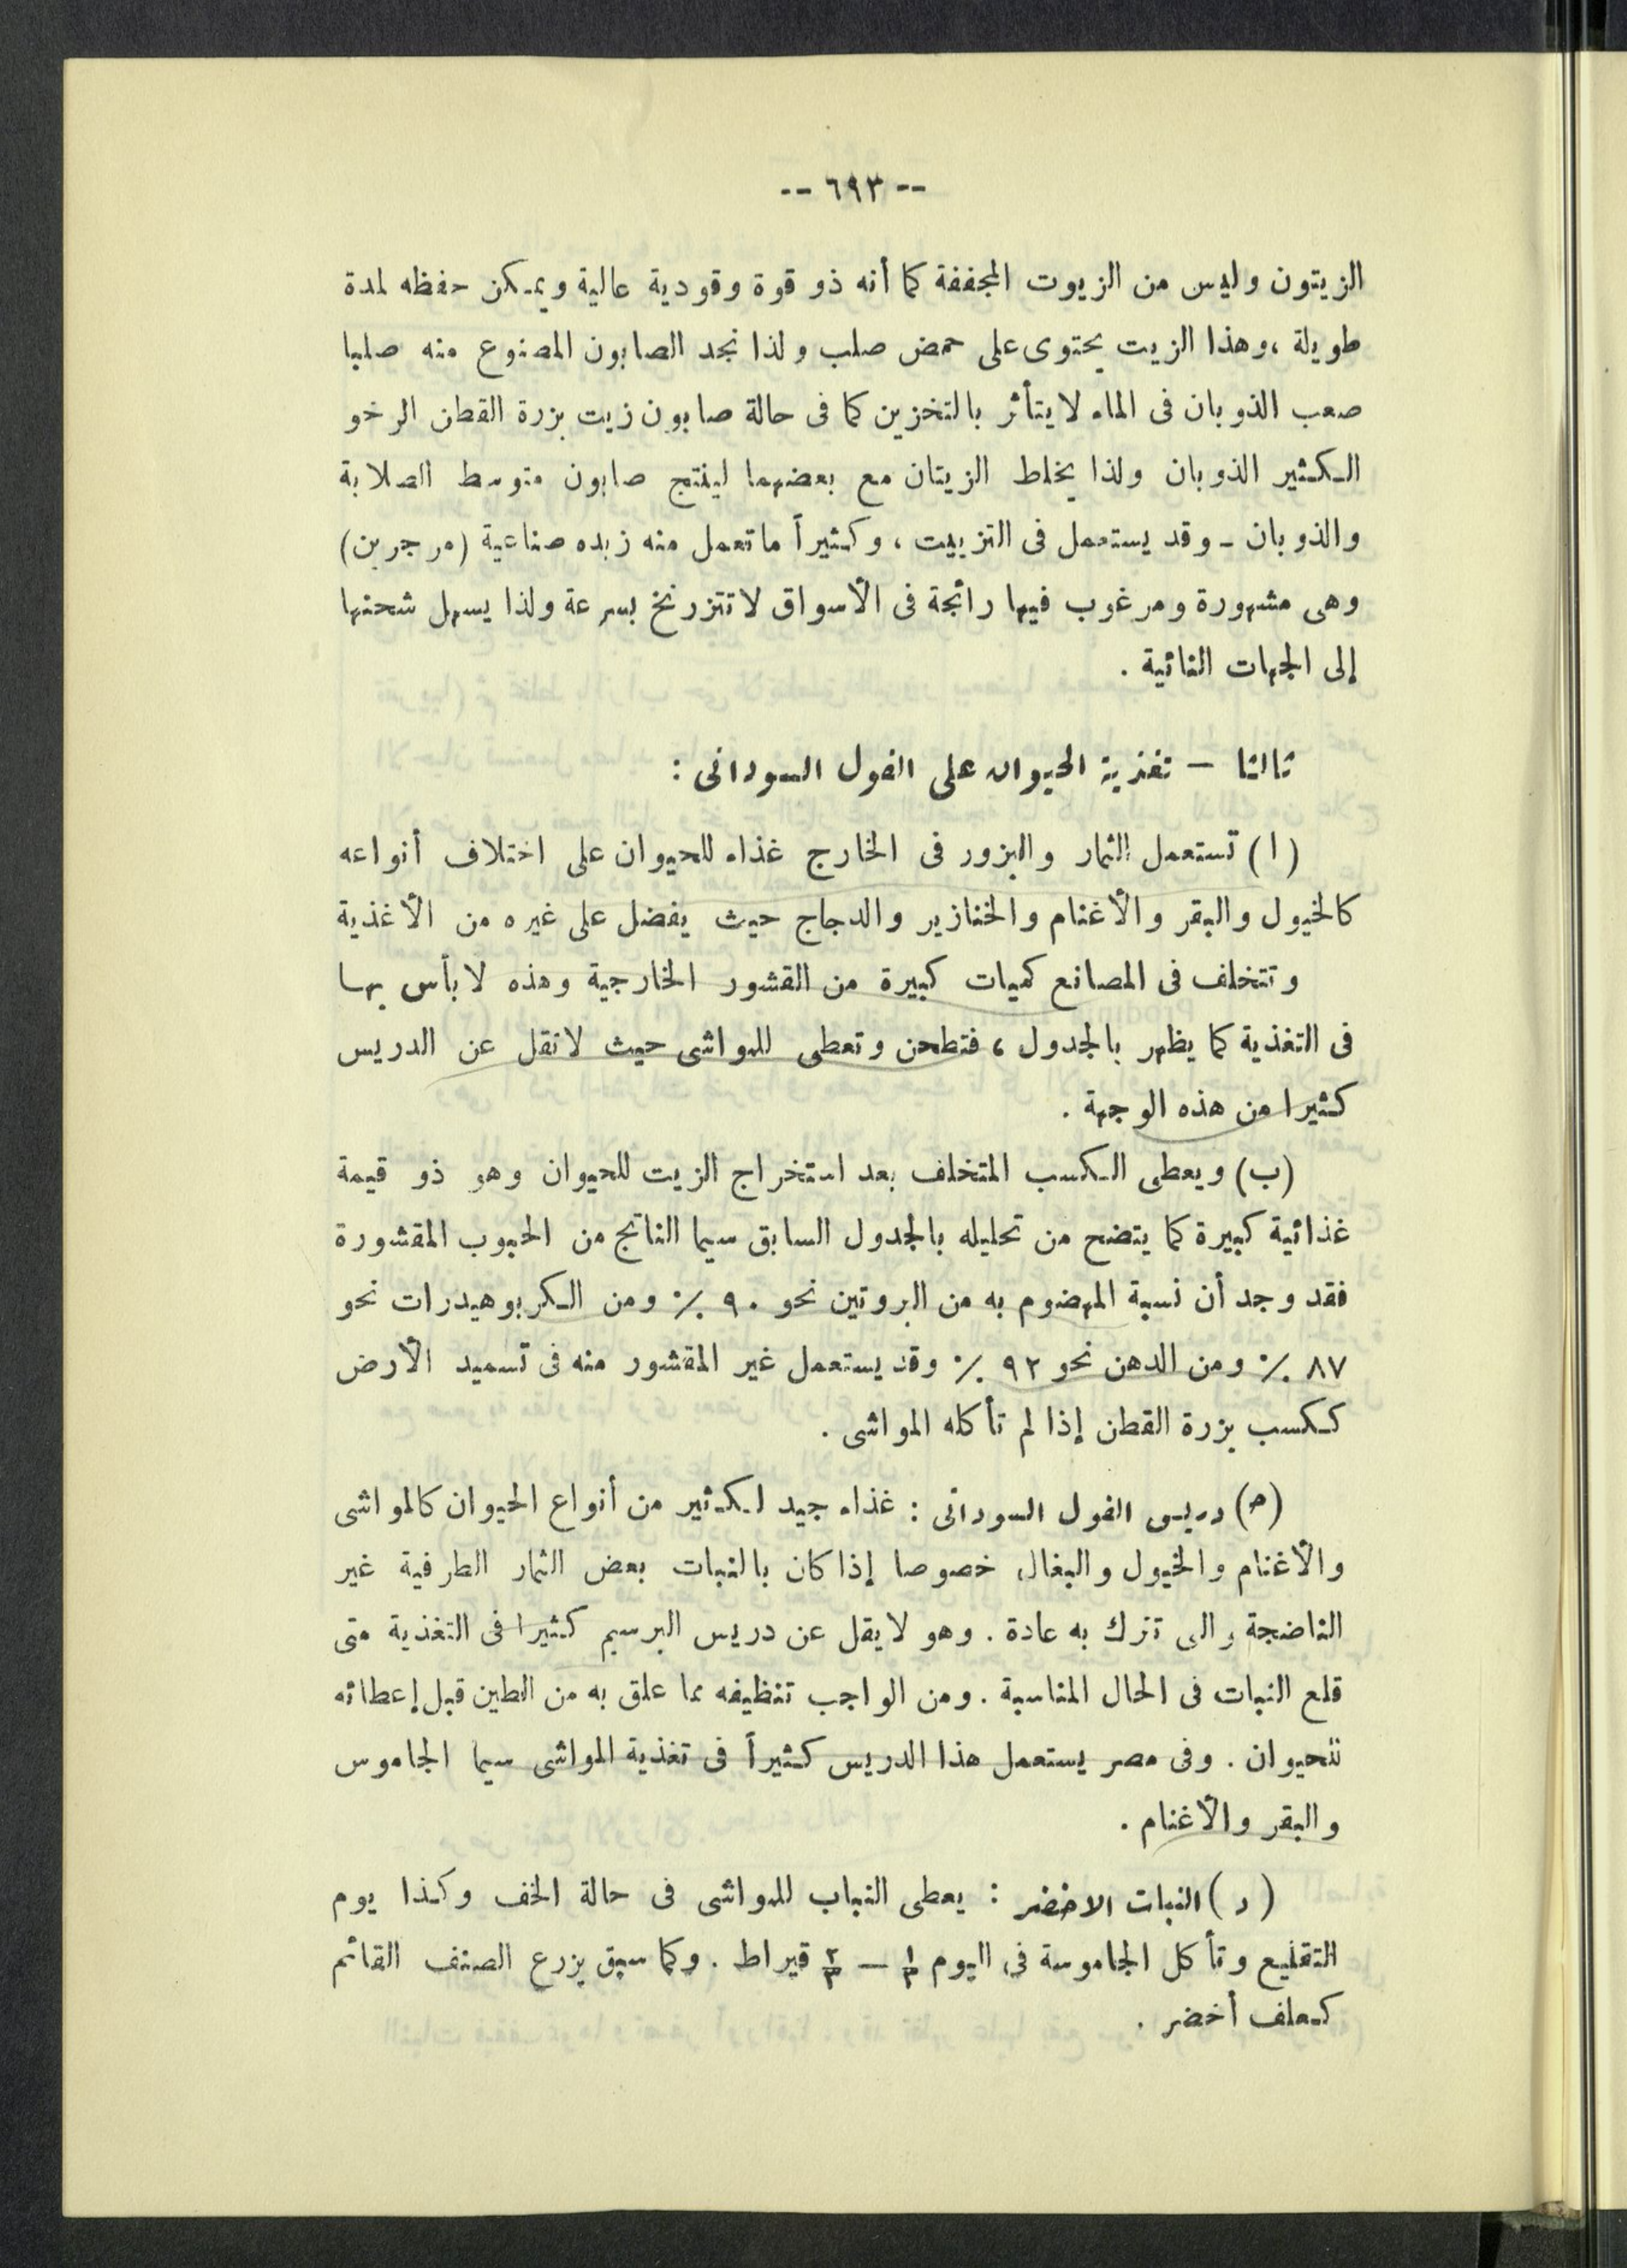 -- ٦٩٣ --
الزيتون وليس من الزيوت المجففة كما أنه ذو قوة وقودية عالية ويمكن حفظه لمدة
طويلة ، وهذا الزيت يحتوى على حمض صلب ولذا نجد الصابون المصنوع منه صلبا
صعب الذوبان فى الماء لا يتأثر بالتخزين كما فى حالة صابون زيت بزرة القطن الرخو
الكثير الذوبان ولذا يخلط الزيتان مع بعضهما لينتج صابون متوسط الصلابة
والذوبان ــ وقد يستعمل فى التزييت ، وكثيراً ما تعمل منه زبده صناعية (مرجرين)
وهى مشهورة ومرغوب فيها رائجة فى الأسواق لا تتزرنخ بسرعة ولذا يسهل شحنها
إلى الجهات النائية .
ثالثا — تغذية الحيوان على الفول السودانى :
(ا) تستعمل الثمار والبزور فى الخارج غذاء للحيوان على اختلاف أنواعه
كالخيول والبقر والأغنام والخنازير والدجاج حيث يفضل على غيره من الأغذية
وتتخلف فى المصانع كميات كبيرة من القشور الخارجية وهذه لا بأس بها
فى التغذية كما يظهر بالجدول ، فتطحن وتعطى للمواشى حيث لا تقل عن الدريس
كثيرا من هذه الوجهة .
(ب) ويعطى الكسب المتخلف بعد استخراج الزيت للحيوان وهو ذو قيمة
غذائية كبيرة كما يتضح من تحليله بالجدول السابق سيما الناتج من الحبوب المقشورة
فقد وجد أن نسبة المهضوم به من البروتين نحو ٩٠ ٪ ومن الكربوهيدرات نحو
٨٧ ٪ ومن الدهن نحو ٩٢ ٪ وقد يستعمل غير المقشور منه فى تسميد الأرض
ككسب بزرة القطن إذا لم تأكله المواشى .
(ﺣ) دريس الفول السودانى : غذاء جيد لكثير من أنواع الحيوان كالمواشى
والأغنام والخيول والبغال خصوصا إذا كان بالنبات بعض الثمار الطرفية غير
الناضجة والتى تترك به عادة . وهو لا يقل عن دريس البرسيم كثيرا فى التغذية متى
قلع النبات فى الحال المناسبة . ومن الواجب تنظيفه مما علق به من الطين قبل إعطائه
للحيوان . وفى مصر يستعمل هذا الدريس كثيراً فى تغذية المواشى سيما الجاموس
والبقر والأغنام .
(د) النبات الاخضر : يعطى النباب للمواشى فى حالة الخف وكذا يوم
التقليع وتأكل الجاموسة فى اليوم ١/٣ — ٢/٣ قيراط . وكما سبق يزرع الصنف القائم
كعلف أخضر .